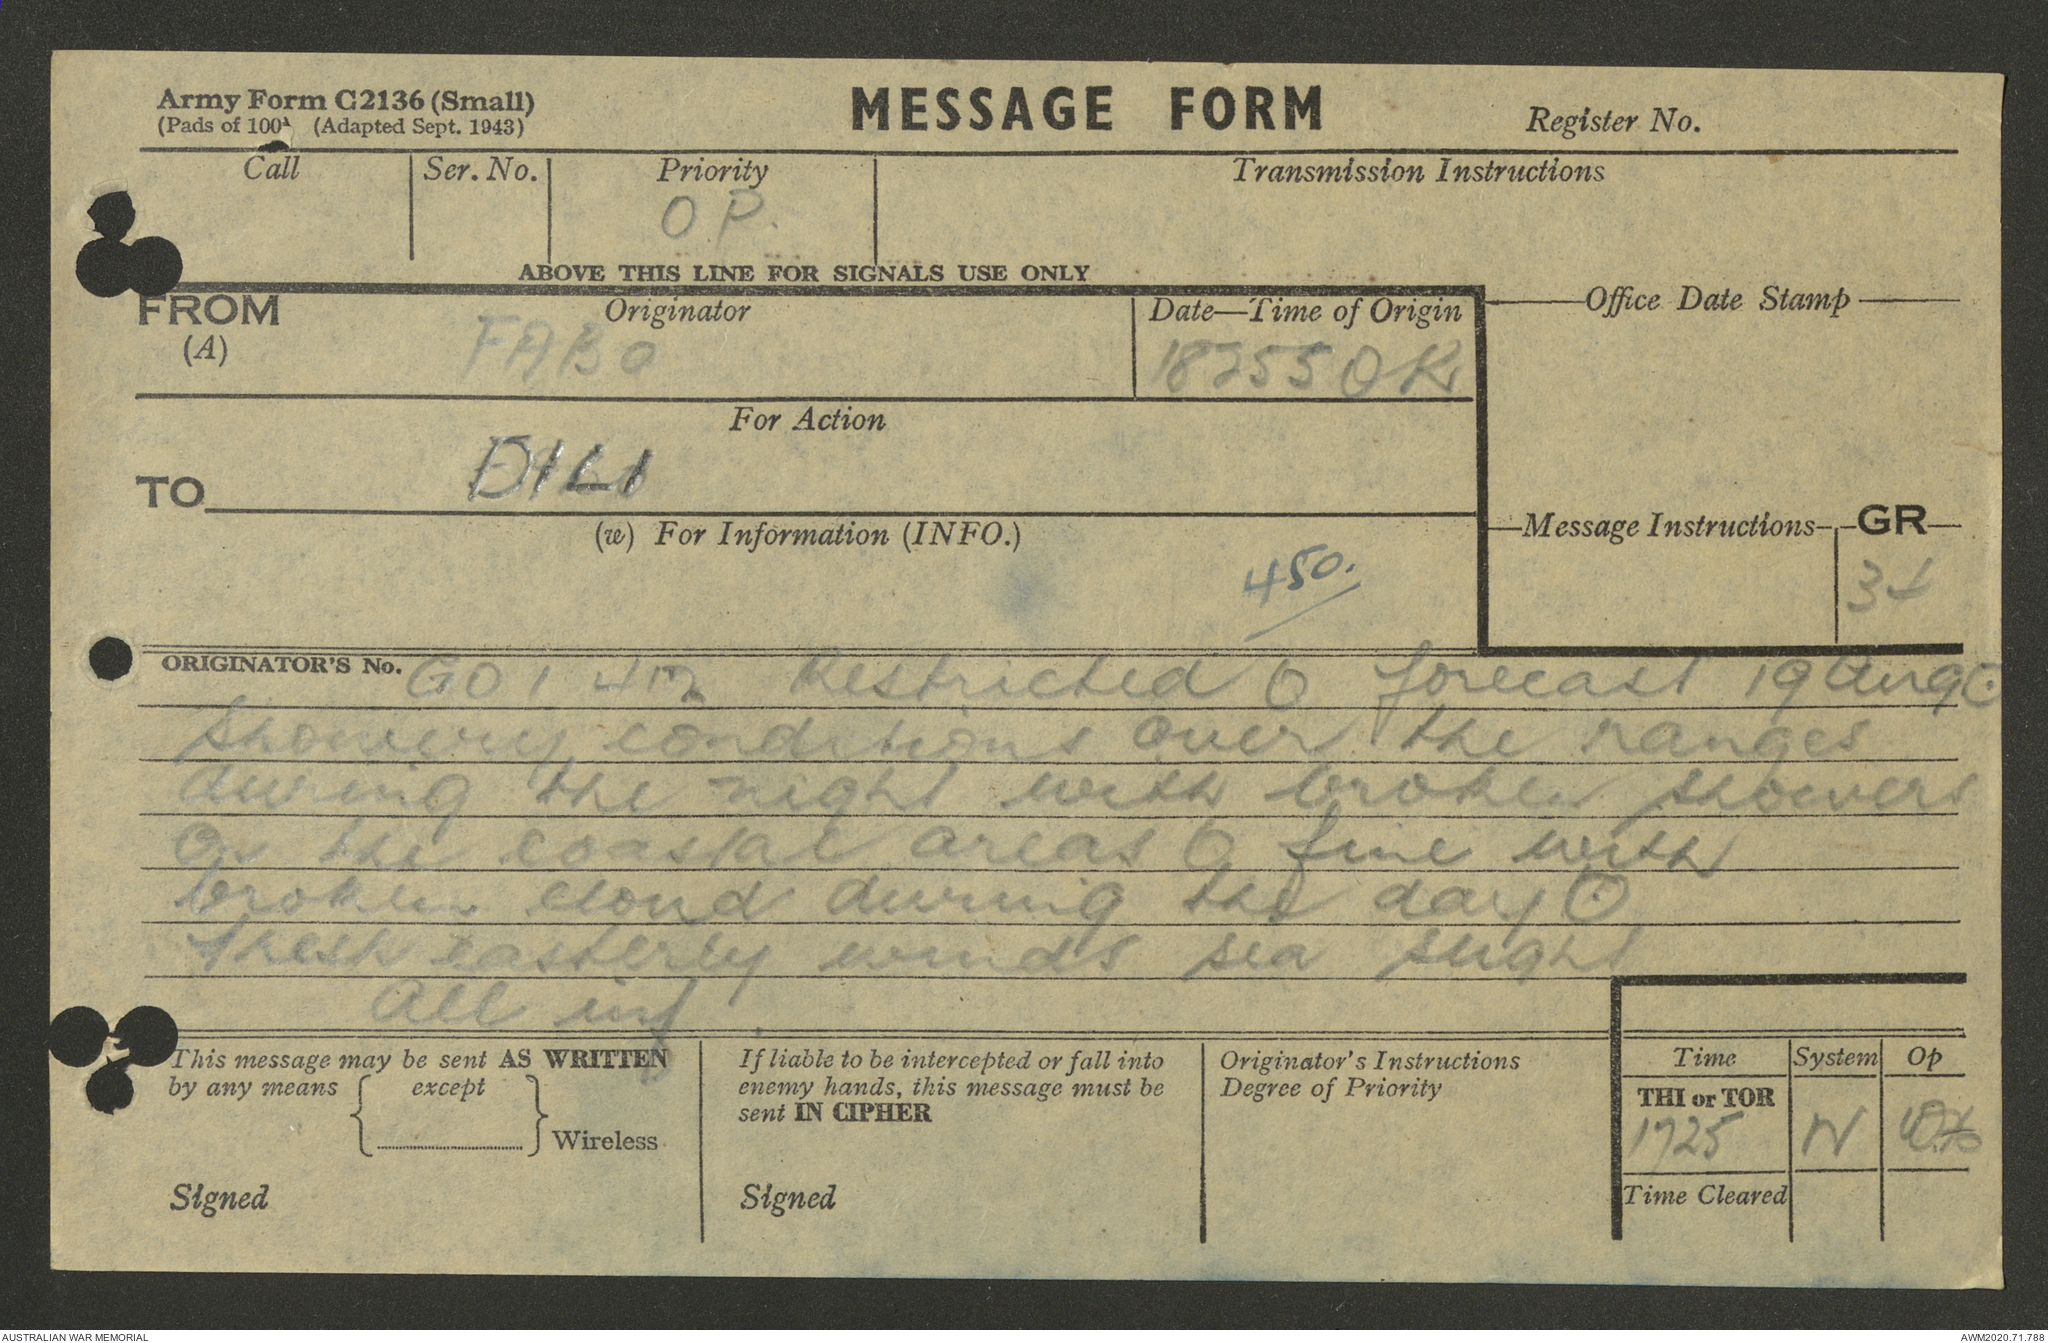 Army Form C2136 (Small)
(Pads of 100) (Adapted Sept. 1943)
MESSAGE FORM
Register No.
Call Ser. No. Priority Transmission Instructions
O.P.
ABOVE THIS LINE FOR SIGNALS USE ONLY
FROM Originator Date—Time of Origin Office Date Stamp
(A) FABO
For Action
TO DILI
(w) For Information (INFO.)
Message Instructions GR
450.
ORIGINATOR'S No. GO1 Restricted O forecast 19 Aug O
Showery conditions over the ranges
during the night with broken showers
on the coastal areas O fine with
broken cloud during the day O
fresh easterly winds sea slight
All inf
This message may be sent AS WRITTEN
by any means except
Wireless
Signed
If liable to be intercepted or fall into
enemy hands, this message must be
sent IN CIPHER
Signed
Originator's Instructions
Degree of Priority
Time System Op
THI or TOR
1725
Time Cleared
AUSTRALIAN WAR MEMORIAL
AWM2020.71.788